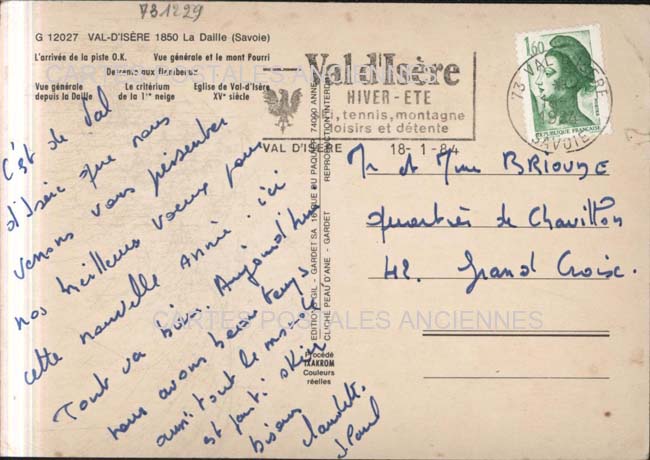 731229
G 12027 VAL-D'ISÈRE 1850 La Daille (Savoie)
L'arrivée de la piste O.K. Vue générale et le mont Pourri
Descente aux flambeaux
Vue générale depuis la Daille
Le critérium de la 1re neige
Eglise de Val-d'Isère XVe siècle
CARTES POSTALES ANCIENNES
Val d'Isère
HIVER - ETE
ski, tennis, montagne
loisirs et détente
VAL D'ISERE 18-1-84
1,60
73 VAL D'ISERE
1984
SAVOIE
REPUBLIQUE FRANCAISE
C'est de Val
d'Isère que nous
venons vous présenter
nos meilleurs voeux pour
cette nouvelle année. Ici
Tout va bien. Aujourd'hui
nous avons beau temps
aussi tout le monde
est parti skier
bisous
Claudette.
J. Paul
EDITIONS GIL - GARDET SA
CLICHE PEAU D'ANE - GARDET
REPRODUCTION INTERDITE
Procédé
TAAKROM
Couleurs
réelles
Mr et Mme BRIOUDE
quartier de Chavillon
42. Grand Croix.
CARTES POSTALES ANCIENNES